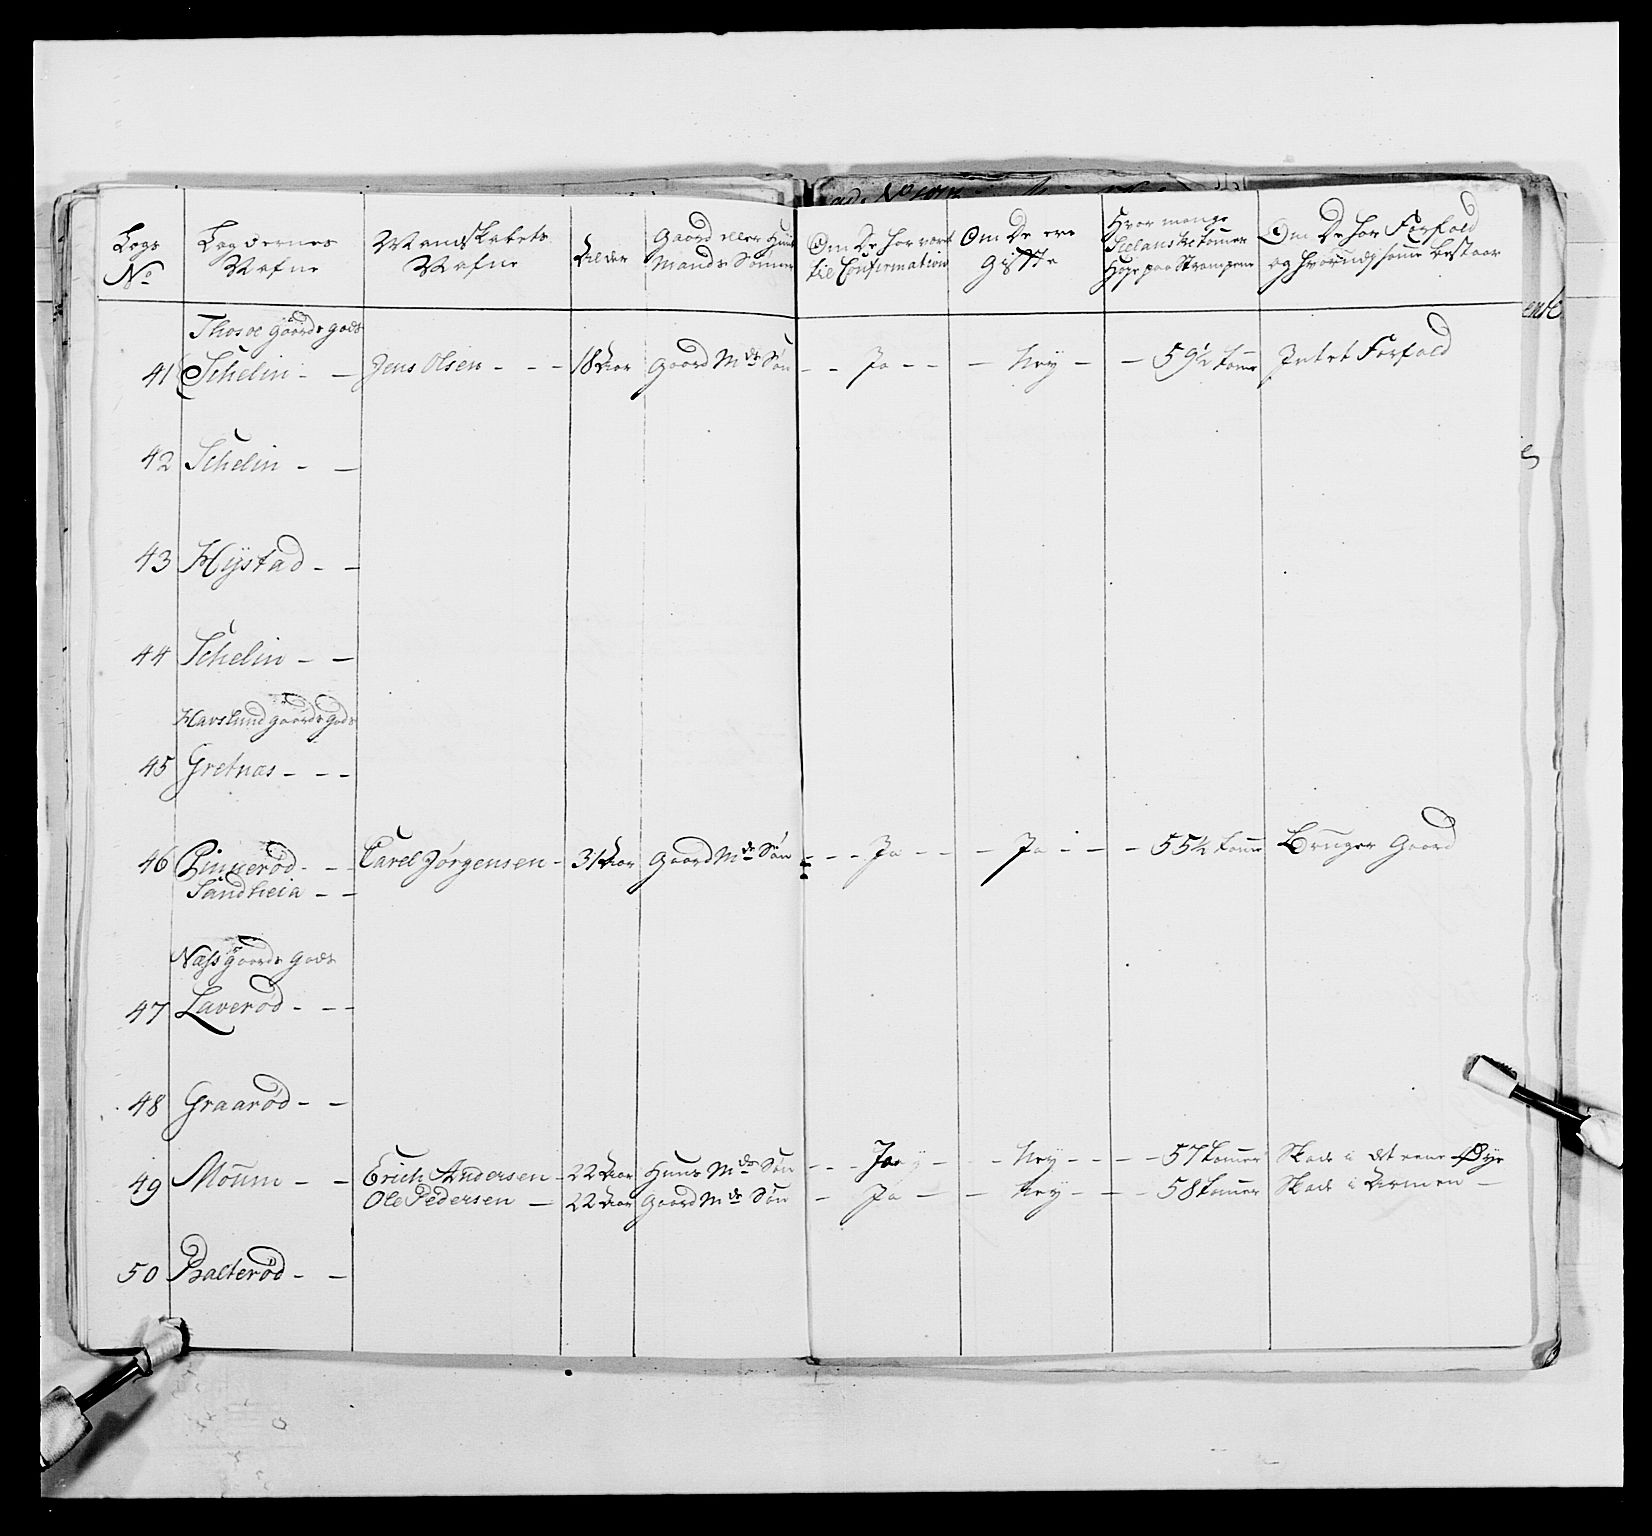 Legs No
Legdernes Nafne
Mandskabets Nafne
Alder
Gaard eller Huus Mands Sønner
Om De har vært til Confirmation
Om De ere Gifte
Hvor mange Sielanske tomer Høye paa Strømpene
Om De har Forfald og hvorudj samme bestaar
Thosøe gaards gods
41 Schelin - - Jens Olsen - - - 18 Aar Gaard Mds Søn - - Ja - - - Ney - - 59½ tome Intet Forfald
42 Schelin - -
43 Hÿstad - -
44 Schelin - -
Havslund gaards gods
45 Gretnæs - - -
46 Pinnerød - - - Carel Jørgensen - 31 Aar Gaard Mds Søn - - - Ja - - - Ja - - - 55½ tome Bruger Gaard
Sandheia - -
Næss gaards gods
47 Laverød - - -
48 Graarød - -
49 Moum - - Erich Andersen - 22 Aar Huus Mds Søn - - - Ja - - - Ney - - - - 57 tomer Skade i det eene Øye
Ole Pedersen - 22 Aar Gaard Mds Søn - Ja - - Ney - - - 58 tomer Skade i Armen -
50 Balterød - -